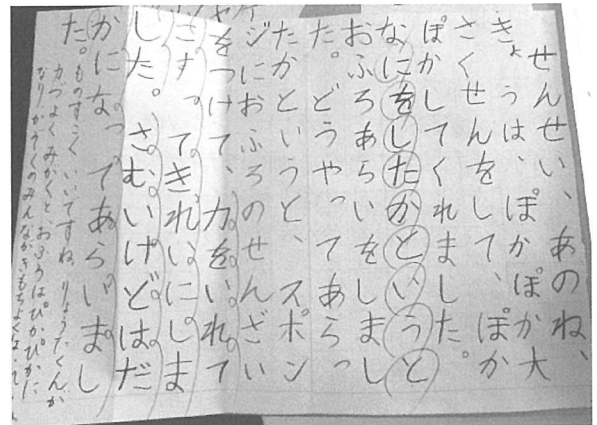 せんせい、あのね、
きょうは、ぽかぽか大
さくせんをして、ぽか
ぽかしてくれました。
なにをしたかというと
おふろあらいをしまし
た。どうやってあらっ
たかというと、スポン
ジにおふろのせんざい
をつけて、力をいれて
こすってきれいにしま
した。さむいけどはだ
かになってあらいまし
た。
ものすごくいいですね。りょうたくんが
力づよくみがくと、おふろはぴかぴかに
なりかぞくのみんながきもちよく